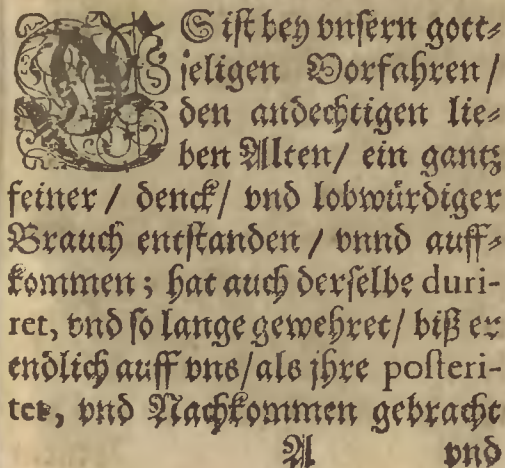 ES ist bey vnsern gott⸗
seligen Vorfahren /
den andechtigen lie⸗
ben Alten / ein gantz
feiner / denck / vnd lobwürdiger
Brauch entstanden / vnnd auff⸗
kommen ; hat auch derselbe duri-
ret, vnd so lange gewehret / biß er
endlich auff vns / als jhre posteri-
tet, vnd Nachkommen gebracht
A vnd